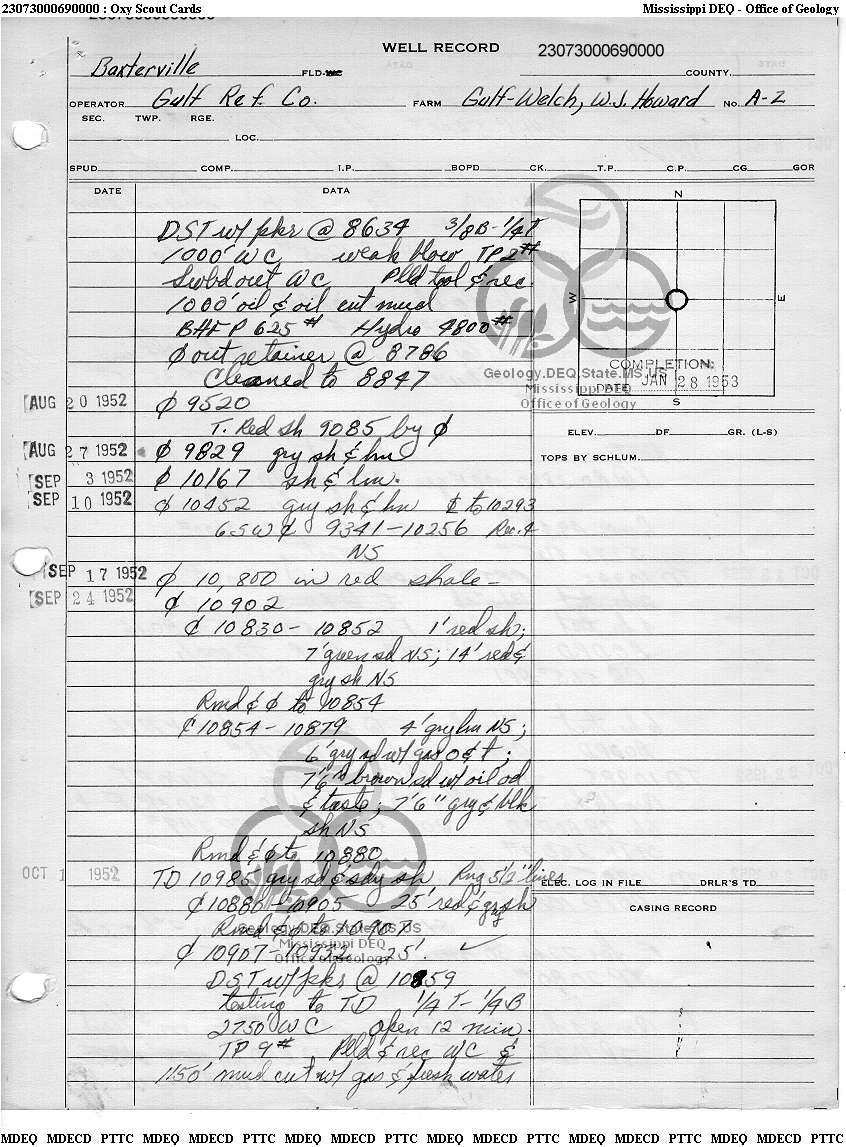 23073000690000 : Oxy Scout Cards Mississippi DEQ - Office of Geology
23073000690000
WELL RECORD 23073000690000
Baxterville FLD. COUNTY.
OPERATOR Gulf Ref. Co. FARM Gulf-Welch, W.J. Howard No. A-2
SEC. TWP. RGE.
LOC.
SPUD COMP. I.P. BOPD CK. T.P. C.P. CG GOR
DATE DATA
N
W E
S
DST w/ pkrs @ 8634 3/8B-1/4T
1000' WC weak blow TP 2#
Swbd out WC Plld tool & rec.
1000' oil & oil cut mud
BHFP 625# Hydro 4800#
∅ out retainer @ 8786
Cleaned to 8847
Geology.DEQ.State.MS.US
Mississippi DEQ
Office of Geology
COMPLETION:
DATE JAN 28 1953
AUG 20 1952 ∅ 9520
T. Red sh 9085 by ∅
ELEV. DF. GR. (L-S)
AUG 27 1952 ∅ 9829 gry sh & lm
TOPS BY SCHLUM.
SEP 3 1952 ∅ 10167 sh & lm.
SEP 10 1952 ∅ 10452 gry sh & lm ₵ to 10293
6 SWC 9341-10256 Rec. 4
NS
SEP 17 1952 ∅ 10,800 in red shale-
SEP 24 1952 ₵ 10902
₵ 10830-10852 1' red sh;
7' green sd NS; 14' red &
gry sh NS
Rmd & ∅ to 10854
₵ 10854-10879 4' gry lm NS;
6' gry sd w/ gas o & t;
7'6" brown sd w/ oil od
& taste; 7'6" gry & blk
sh NS
Rmd & ∅ to 10880
OCT 1 1952 TD 10985 gry sd & sdy sh Rng 5 1/2" liner
ELEC. LOG IN FILE DRLR'S TD
₵ 10880-10905 25' red & gry sh
CASING RECORD
Rmd & ∅ to 10907
Geology.DEQ.State.MS.US
Mississippi DEQ
Office of Geology
₵ 10907-10932 25'.
DST w/ pkrs @ 10859
testing to TD 1/4T-1/4B
2750' WC open 12 min.
TP 9# Plld & rec WC &
1150' mud cut w/ gas & fresh water
MDEQ MDECD PTTC MDEQ MDECD PTTC MDEQ MDECD PTTC MDEQ MDECD PTTC MDEQ MDECD PTTC MDEQ MDECD PTTC